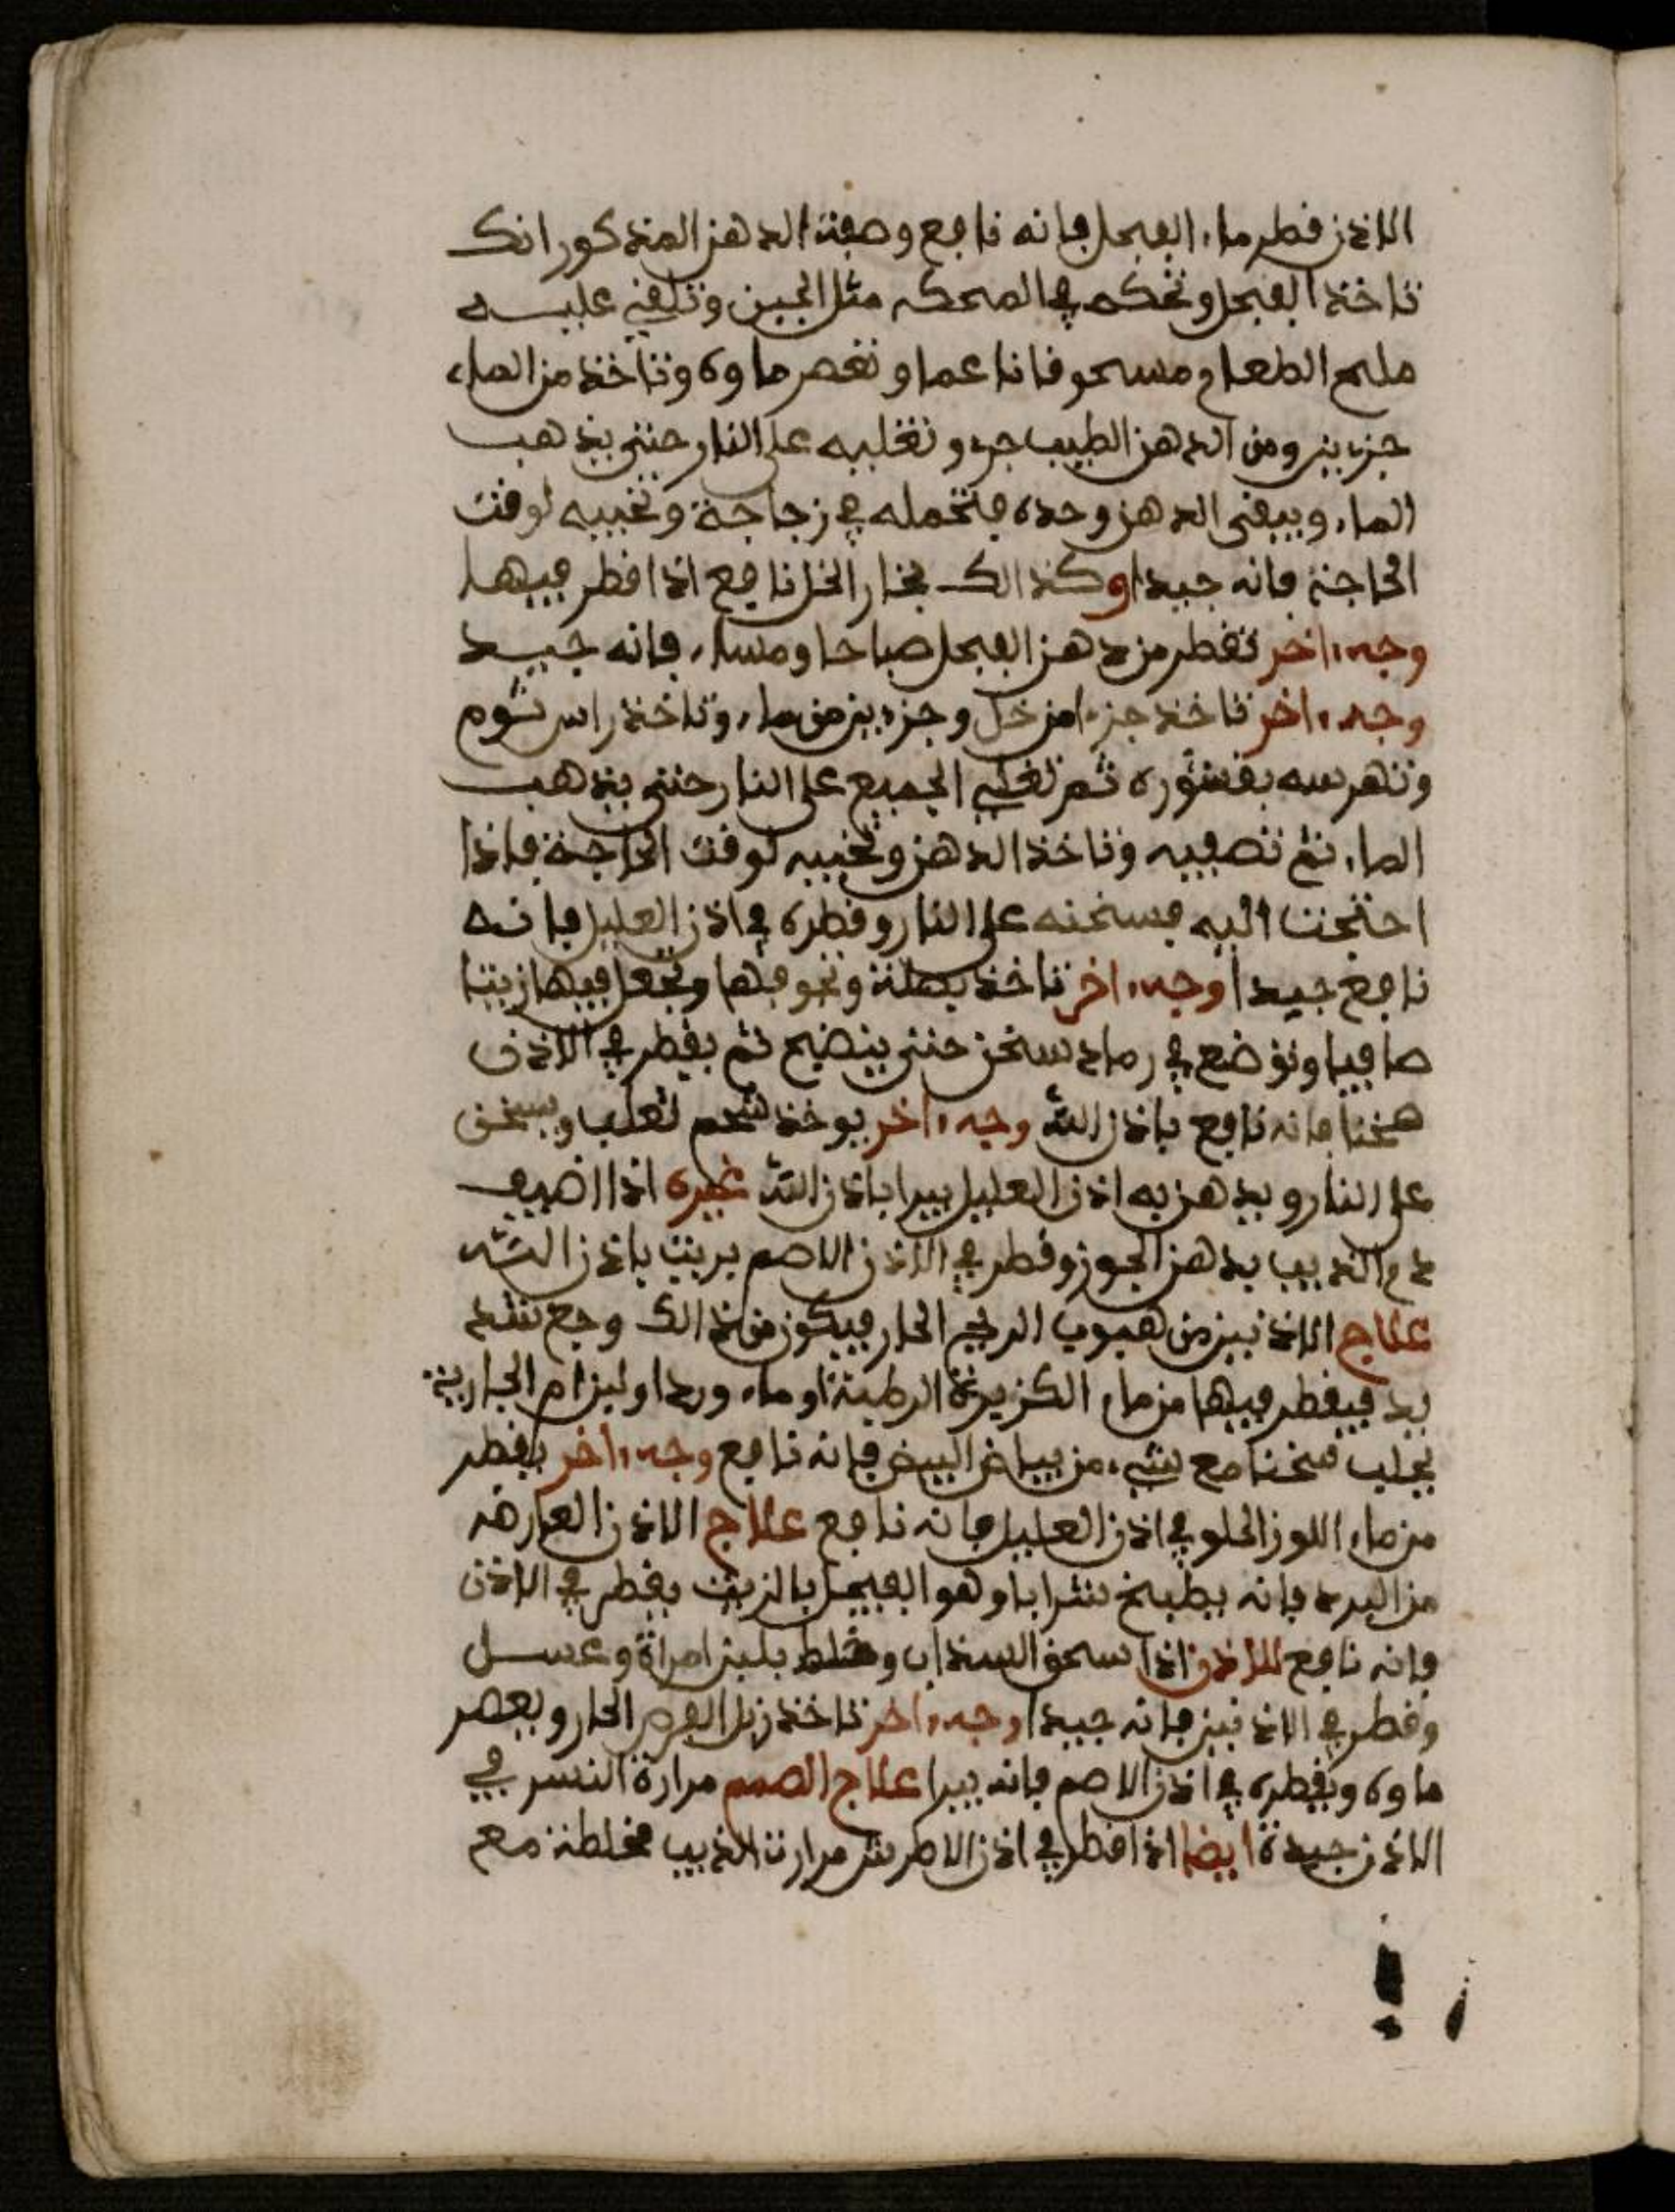 الاذن فطر ماء الفجل فانه نافع وصفة الدهن المذكور انك
تاخذ الفجل وتحكه في المحكه مثل الجبن وتلقي عليه
ملح الطعام مسحوقا ناعما وتعصر ماوه وتاخذ من الماء
جزءين ومن الدهن الطيب جزء وتغليه على النار حتى يذهب
الماء ويبقى الدهن وحده فتحمله في زجاجة وتخبيه لوقت
الحاجة فانه جيدا وكذالك بخار الخل نافع اذا قطر فيها
وجه ءاخر تقطر من دهن الفجل صباحا ومساء فانه جيد
وجه ءاخر تاخذ جزءا من خل وجزءين من ماء وتاخذ راس ثوم
وتهرسه بقشوره ثم تغلي الجميع على النار حتى يذهب
الماء ثم تصفيه وتاخذ الدهن وتخبيه لوقت الحاجة فاذا
احتجت اليه فسخنه على النار وقطره في اذن العليل فانه
نافع جيدا وجه ءاخر تاخذ بصلة وتجوفها وتجعل فيها زيتا
صافيا وتوضع في رماد سخن حتى ينضج ثم يقطر في الاذن
سخنا فانه نافع باذن الله وجه ءاخر يوخذ شحم ثعلب ويسخن
على النار ويدهن به اذن العليل يبرا باذن الله غيره اذا اضيف
دم الذيب بدهن الجوز وقطر في الاذن الاصم بريت باذن الله
علاج الاذنين من هبوب الريح الحار فيكون من ذالك وجع شد
يد فيقطر فيها من ماء الكزبرة الرطبة او ماء ورد او لبن ام الجارية
يحلب سخنا مع شيء من بياض البيض فانه نافع وجه ءاخر يقطر
من ماء اللوز الحلو في اذن العليل فانه نافع علاج الاذن العارضه
من البرد فانه يطبخ شرابا وهو الفيجل بالزيت يقطر في الاذن
فانه نافع للاذن اذا سحق السذاب وخلط بلبن امراة وعسل
وقطر في الاذنين فانه جيدا وجه ءاخر تاخذ زبل الفرس الحار ويعصر
ماوه ويقطره في اذن الاصم فانه يبرا علاج الصمم مرارة النسر في
الاذن جيدة ايضا اذا قطر في اذن الاطرش مرارة الذيب مخلطة مع